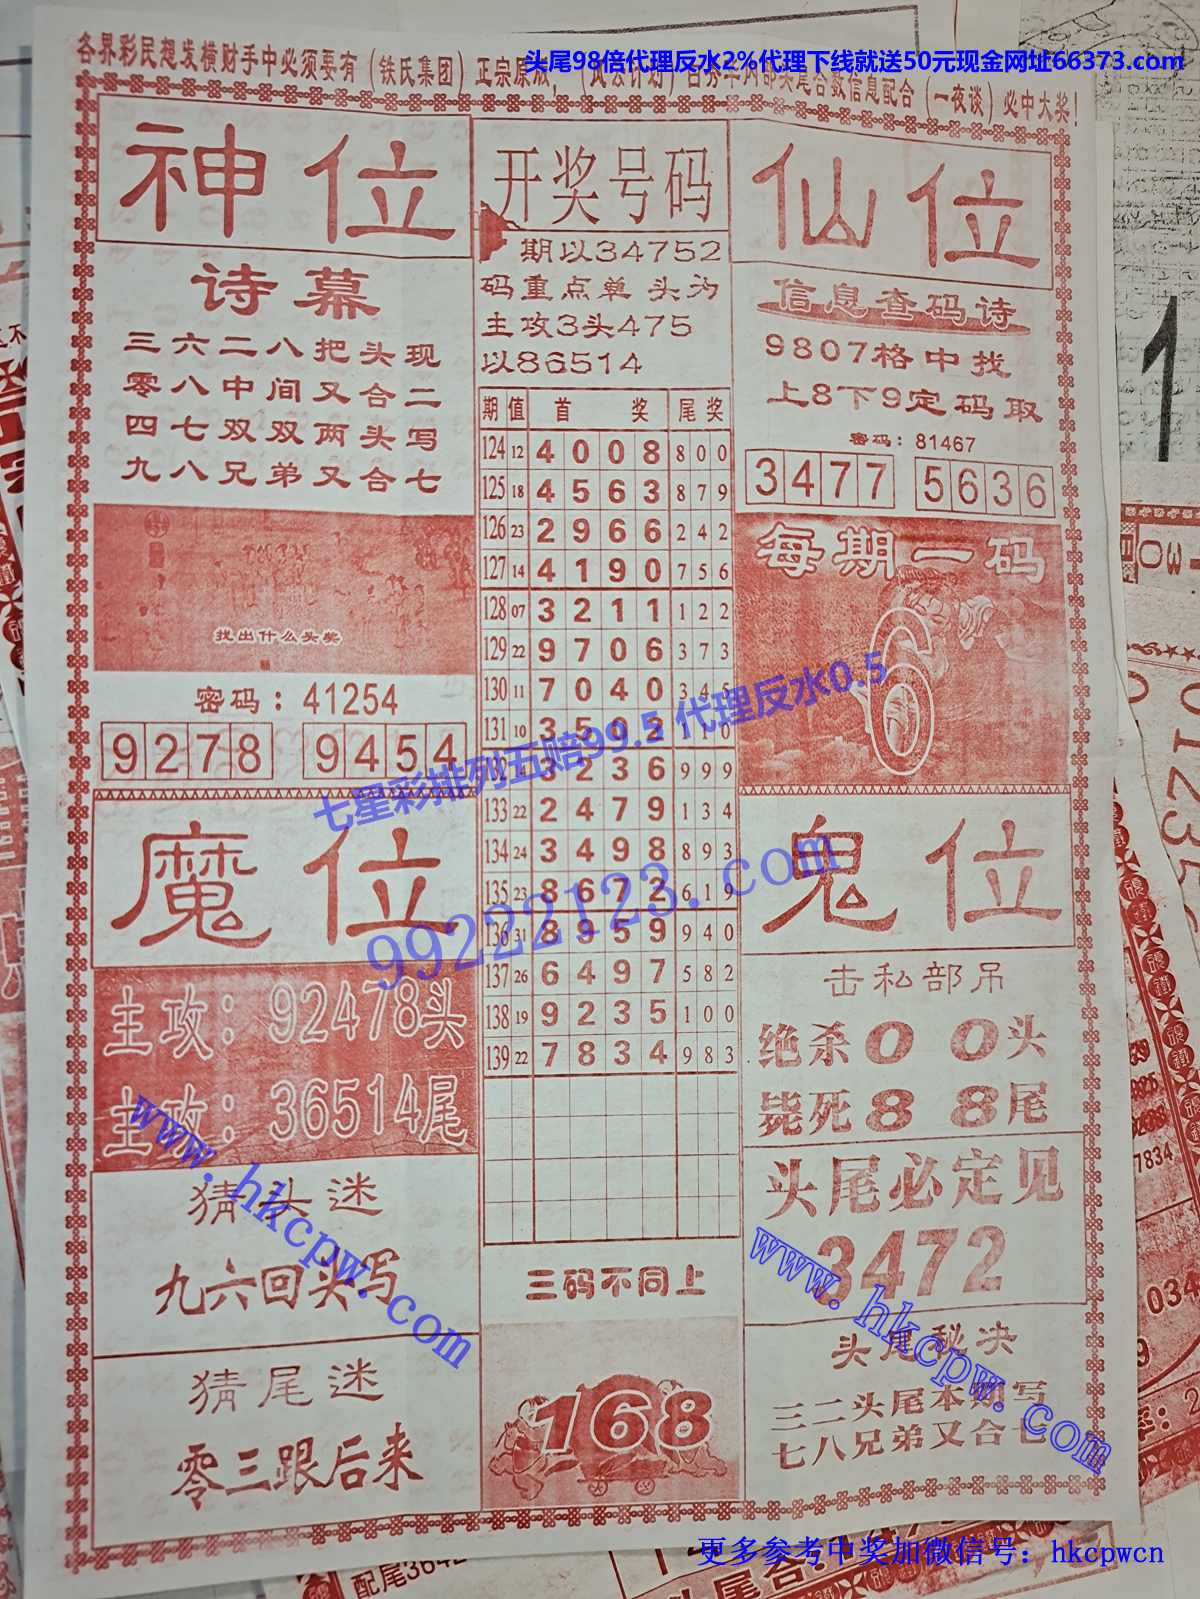 头尾98倍代理反水2%代理下线就送50元现金网址66373.com
各界彩民想发横财手中必须要有（铁氏集团）正宗原版，（风云计划）合数信息配合（一夜谈）必中大奖！
神位
诗幕
三六二八把头现
零八中间又合二
四七双双两头写
九八兄弟又合七
找出什么头奖
密码：41254
9278 9454
魔位
主攻：92478头
主攻：36514尾
猜头迷
九六回头写
猜尾迷
零三跟后来
开奖号码
期以34752
码重点单 头为
主攻3头475
以86514
期 值 首 奖 尾奖
124 12 4008 800
125 18 4563 879
126 23 2966 242
127 14 4190 756
128 07 3211 122
129 22 9706 373
130 11 7040 345
131 10 3502 110
3236 999
133 22 2479 134
134 24 3498 893
135 23 8672 619
136 31 8959 940
137 26 6497 582
138 19 9235 100
139 22 7834 983
三码不同上
168
仙位
信息查码诗
9807格中找
上8下9定码取
密码：81467
3477 5636
每期一码
6
鬼位
击私部吊
绝杀0 0头
毙死8 8尾
头尾必定见
3472
头尾秘决
三二头尾本期写
七八兄弟又合七
七星彩排列五赔99.5 代理反水0.5
99222123.com
www.hkcpw.com
www.hkcpw.com
更多参考中奖加微信号：hkcpwcn